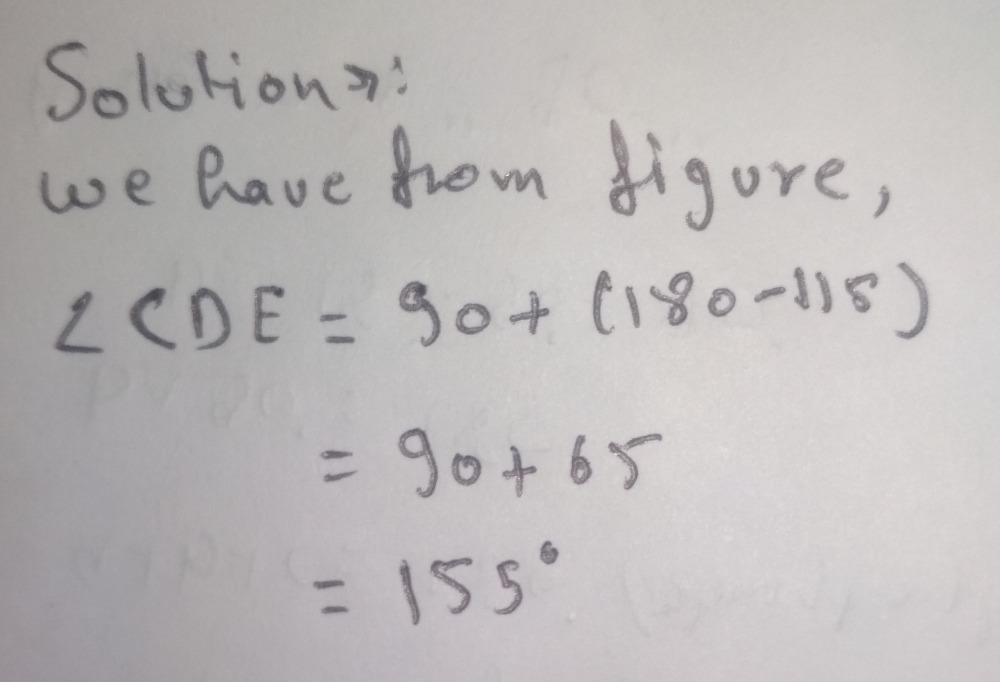 Solution⇒:
we have from figure,
∠CDE = 90+(180-115)
= 90+65
= 155°